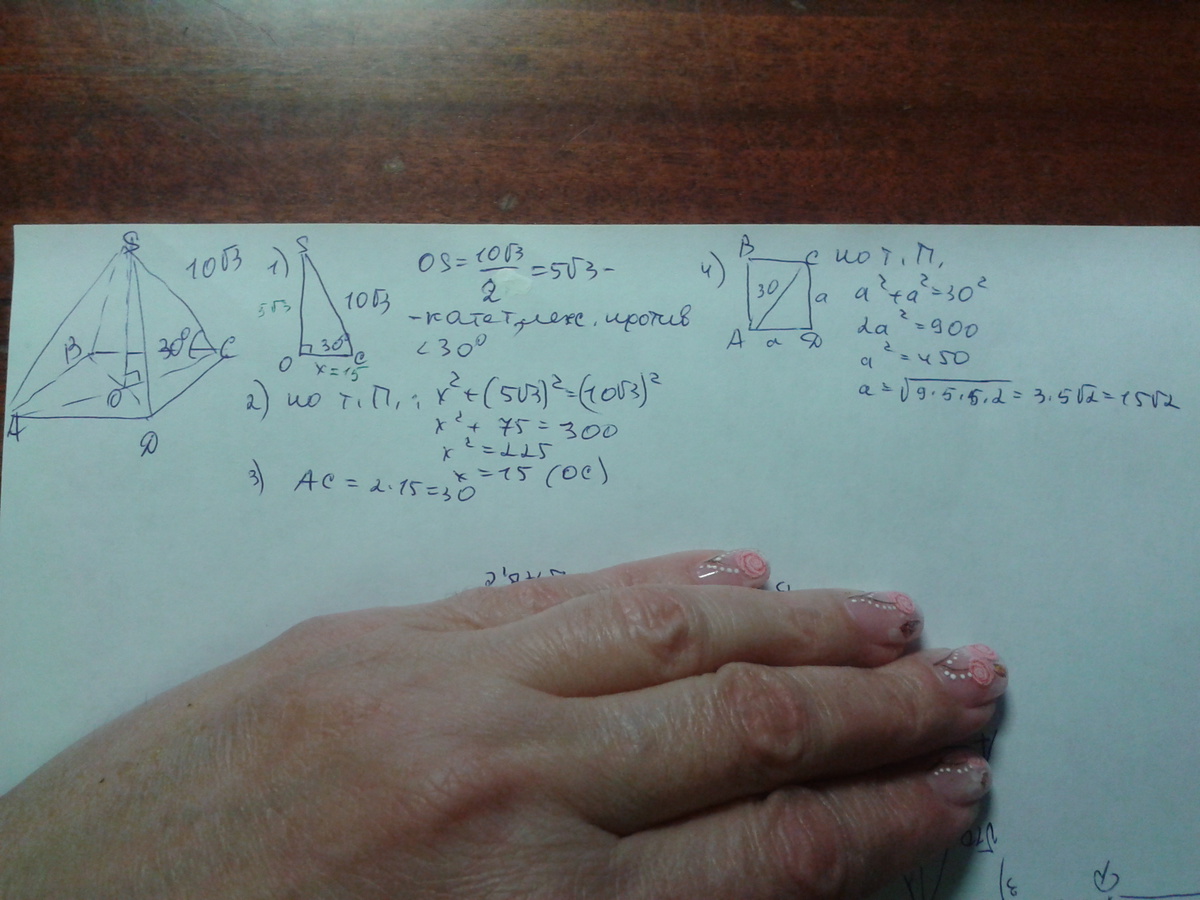 S
10√3
B
30°
C
O
A
D
1)
S
5√3
10√3
30°
O
C
x=15
OS = 10√3/2 = 5√3 -
- катет, леж. против
< 30°
2) по т. П.: x² + (5√3)² = (10√3)²
x² + 75 = 300
x² = 225
x = 15 (OC)
3) AC = 2·15 = 30
4)
B
C
30
a
A
a
D
по т. П.
a² + a² = 30²
2a² = 900
a² = 450
a = √9·5·5·2 = 3·5√2 = 15√2
√70
3)